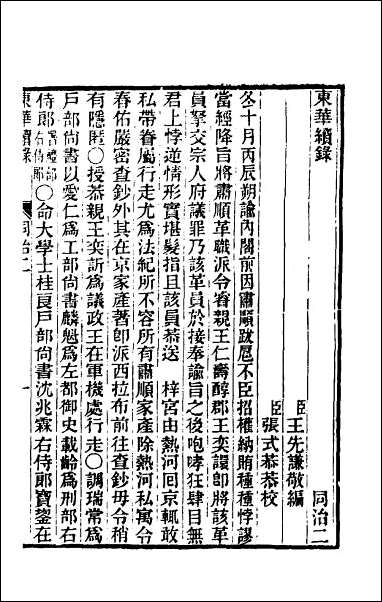 東華續錄 同治二
臣王先謙敬編
臣張式恭恭校
冬十月丙辰朔諭內閣前因肅順跋扈不臣招權納賄種種悖謬
當經降旨將肅順革職派令睿親王仁壽醇郡王奕譞卽將該革
員拏交宗人府議罪乃該革員於接奉諭旨之後咆哮狂肆目無
君上悖逆情形實堪髮指且該員恭送 梓宮由熱河回京輒敢
私帶眷屬行走尤爲法紀所不容所有肅順家產除熱河私寓令
春佑嚴密查鈔外其在京家產著卽派西拉布前往查鈔毋令稍
有隱匿〇授恭親王奕訢爲議政王在軍機處行走〇調瑞常爲
戶部尙書以愛仁爲工部尙書麟魁爲左都御史載齡爲刑部右
侍郞舊禮部右侍郞〇命大學士桂良戶部尙書沈兆霖右侍郞寶鋆在
東華續錄 同治二 一